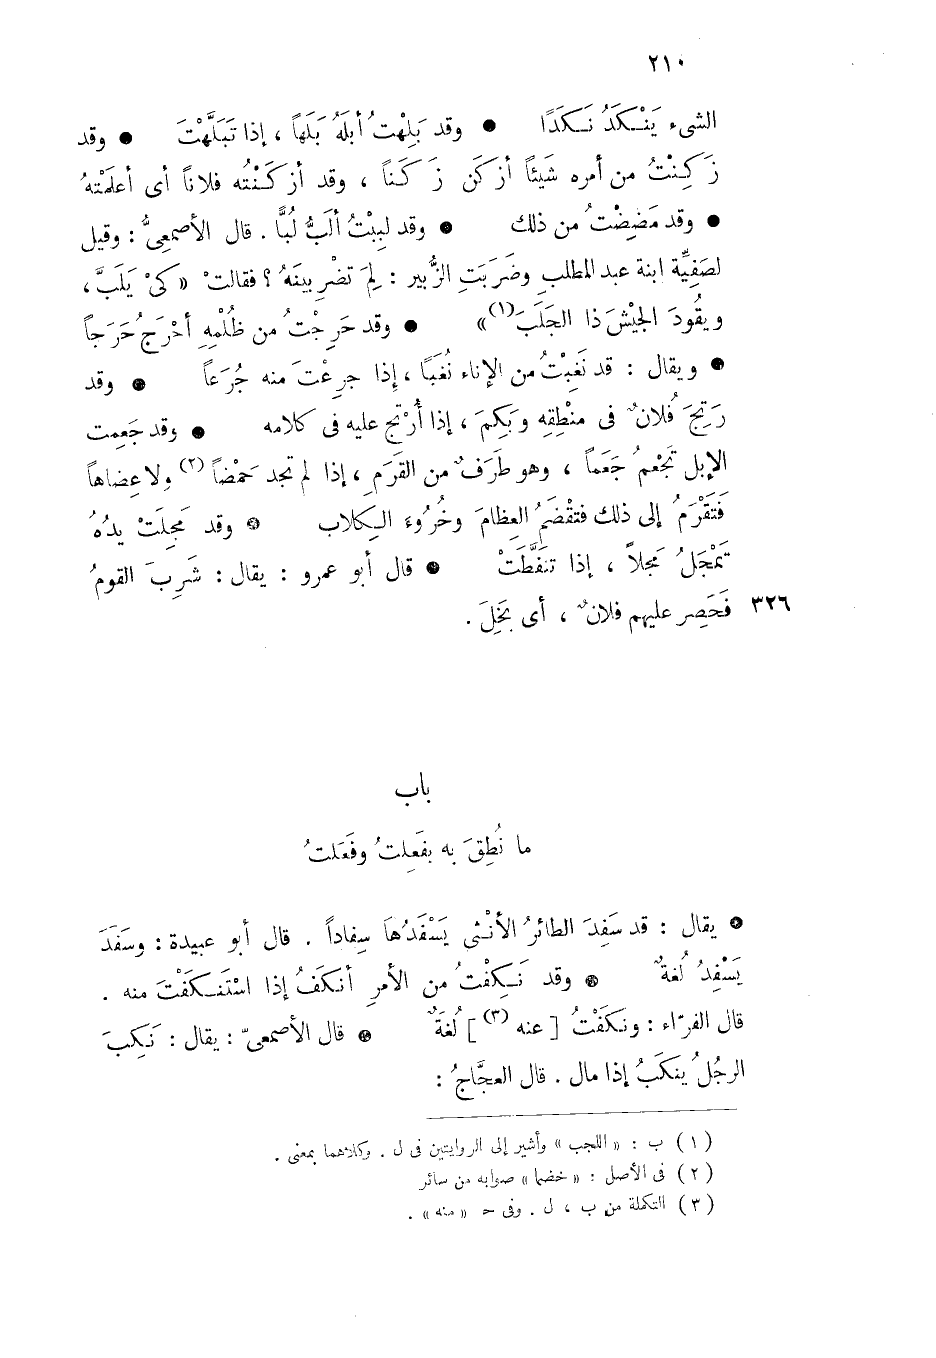 ٢١٠
الشىء يَنْكَدُ نَكَدًا ● وقد بَلِهْتُ أبْلَهُ بَلَهاً ، إذا تَبَلَّهْتَ ● وقد
زَكِنْتُ من أمره شَيْئاً أزكَن زَكَناً ، وقد أزكَنْتُه فلاناً أى أعلمْتهُ
● وقد مَضِضْتُ من ذلك ● وقد لبِبْتُ ألَبُّ لُبًّا . قال الأصمعىُّ : وقيل
لصَفِيَّة ابنة عبد المطلب وضَرَبَتِ الزُّبير : لِمَ تضْرِبينَهُ ؟ فقالتْ « كَىْ يَلَبَّ ،
ويقُودَ الجيْشَ ذا الجَلَبَ(١) » ● وقد حَرِجْتُ من ظُلْمِهِ أحْرَجُ حَرَجاً
● ويقال : قد نَغِبْتُ من الإناء نُغَبًا ، إذا جرعْتَ منه جُرَعاً ● وقد
رَتِجَ فُلانٌ فى منْطِقِه وبَكِمَ ، إذا أُرْتِجَ عليه فى كلامه ● وقد جَعِمت
الإبل تَجْعمُ جَعَماً ، وهو طَرَفٌ من القَرَمِ ، إذا لم تجد حَمْضاً(٢) ولا عِضاهاً
فَتَقْرَمُ إلى ذلك فتقْضَمُ العِظامَ وخُرُوءَ الكلاب ● وقد مَجِلَتْ يدُهُ
تَمْجَلُ مَجَلاً ، إذا تنَفَّطَتْ ● قال أبو عمرو : يقال : شَرِبَ القومُ
٣٢٦ فَحَصِر عليهم فلانٌ ، أى بَخِلَ .
باب
ما نُطِقَ به بفَعِلتُ وفَعَلتُ
● يقال : قد سَفِدَ الطائرُ الأنْثى يَسْفَدُهاَ سِفاداً . قال أبو عبيدة : وسَفَدَ
يَسْفِدُ لُغةٌ ● وقد نَكِفْتُ من الأمرِ أنكَفُ إذا اسْتَنكَفْتَ منه .
قال الفرّاء : ونكَفْتُ [ عنه (٣) ] لُغَةٌ ● قال الأصمعىّ : يقال : نَكِبَ
الرجُلُ ينكَبُ إذا مال . قال العجَّاجُ :
(١) ب : « اللجب » وأشير إلى الروايتين فى ل . وكلاهما بمعنى .
(٢) فى الأصل : « خضما » صوابه من سائر
(٣) التكملة من ب ، ل . وفى ح « منه » .